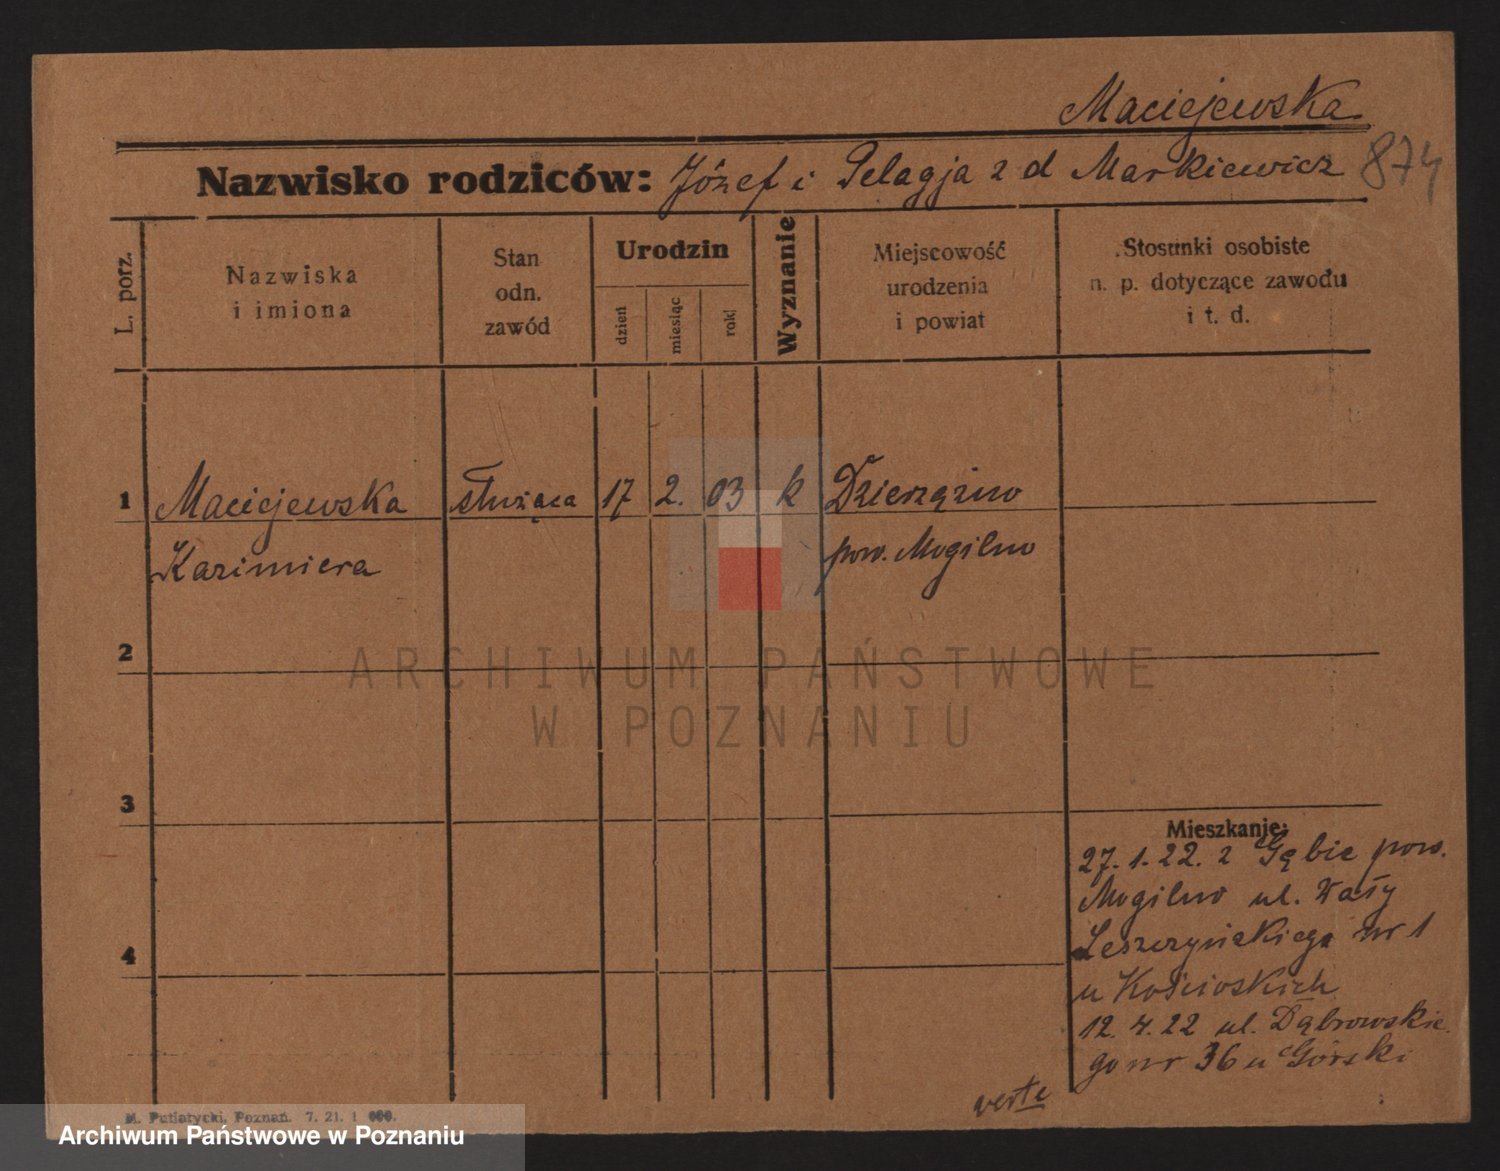 Maciejewska
Nazwisko rodziców: Józef i Pelagja z d Markiewicz 874
L. porz.
Nazwiska
i imiona
Stan
odn.
zawód
Urodzin
dzień
miesiąc
rok
Wyznanie
Miejscowość
urodzenia
i powiat
Stosunki osobiste
n. p. dotyczące zawodu
i t. d.
1 Maciejewska służąca 17 2. 03 k Dzierzążno
Kazimiera pow. Mogilno
2
ARCHIWUM PAŃSTWOWE
W POZNANIU
3
Mieszkanie:
27.1.22. z Gębic pow.
Mogilno ul. Wały
Leszczyńskiego nr 1
4
u Kościoskich
12.4.22 ul. Dąbrowskie
go nr 36 u Górski
verte
M. Putiatycki, Poznań. 7. 21. 1 000.
Archiwum Państwowe w Poznaniu